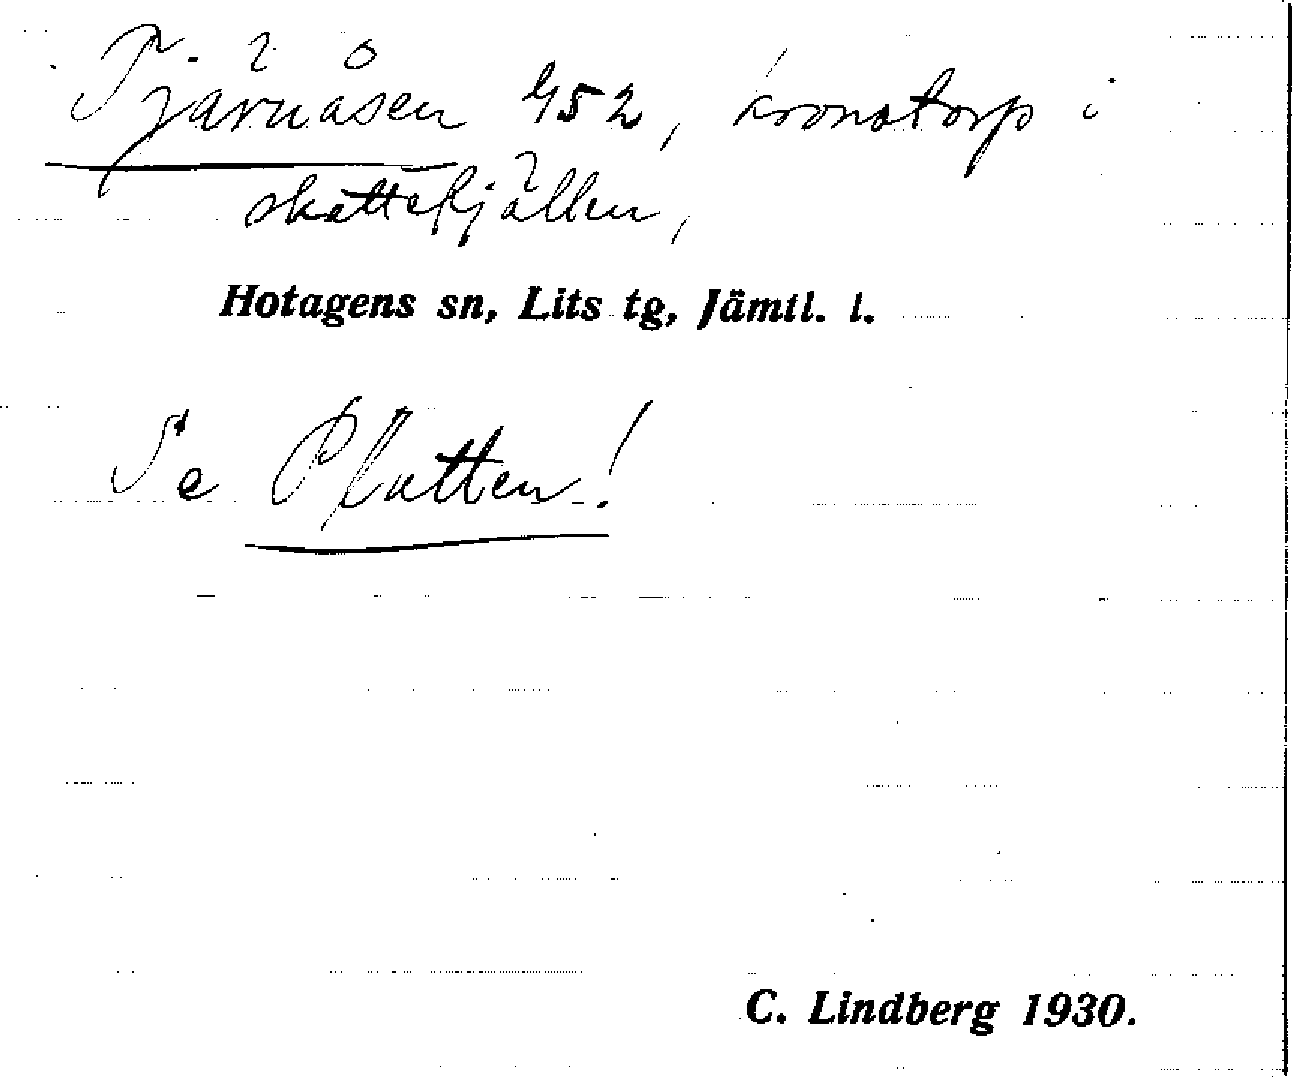 Tjärnåsen 452, kronotorp i
skattefjällen,
Hotagens sn, Lits tg, Jämtl. l.
Se Flatten!
C. Lindberg 1930.